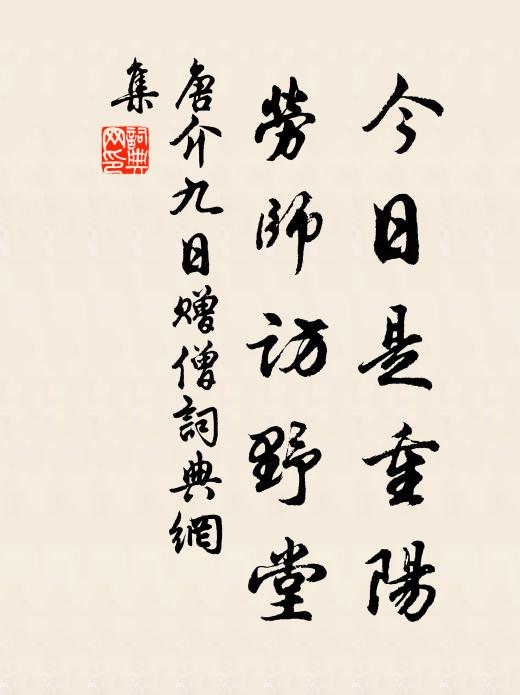 今日是重陽
勞師訪野堂
唐介九日贈僧詞典網
集
詞典網印